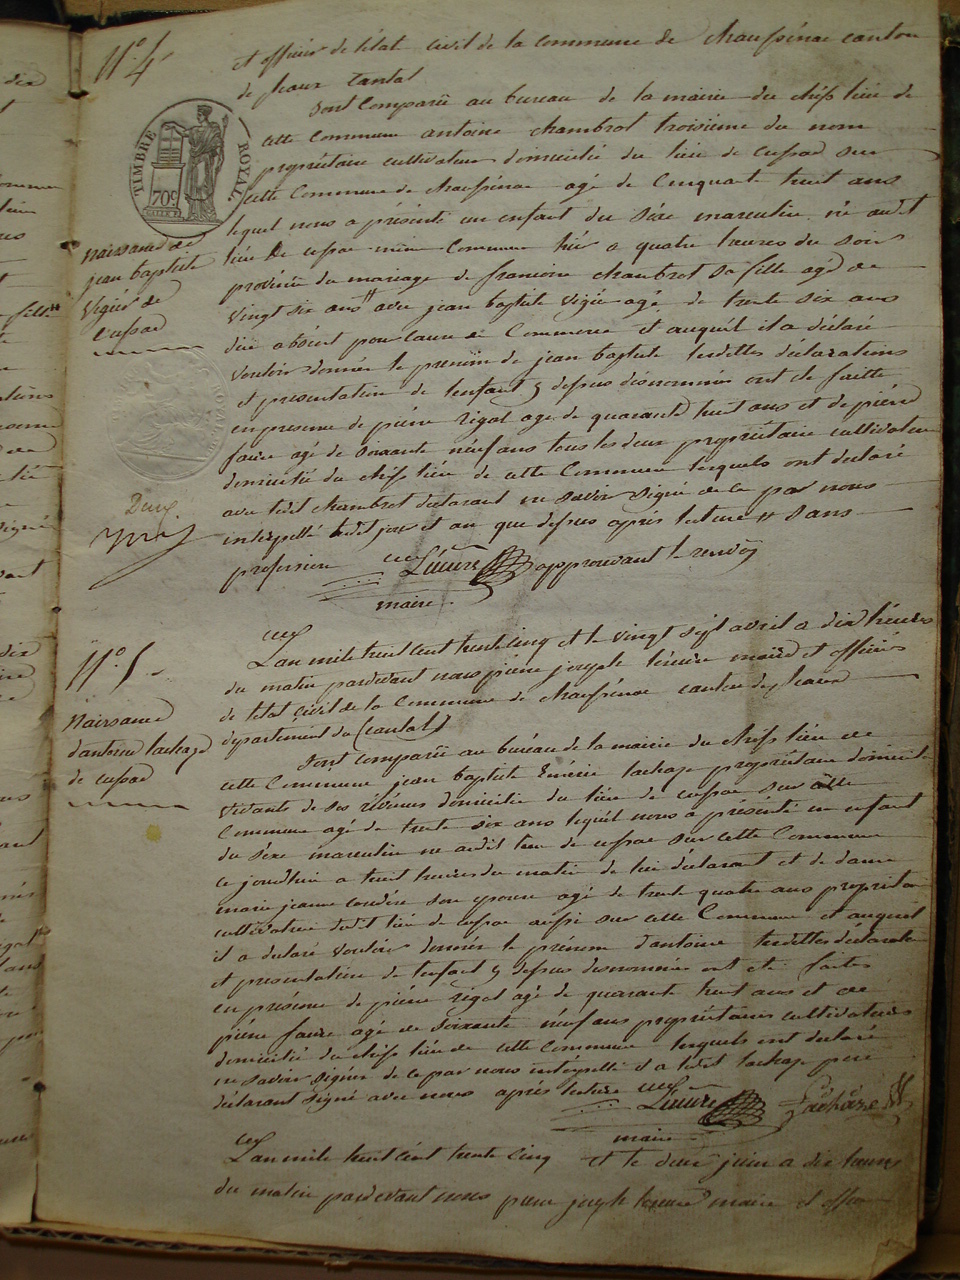 N° 4
et officier de l'état civil de la commune de chaussenac canton
de pleaux Cantal
TIMBRE ROYAL
70c
Sont Comparü au bureau de la mairie du chéf liéu de
cette Commune antoine chambrot troisiéme du nom
propriétaire cultivateur domicilié du liéu de cussac sur
cette Commune de chaussénac agé de Cinquante huit ans
lequel nous a présenté un enfant du séxe masculin né audit
liéu de cussac méme Commune hiér a quatre heures du soir
provénu du mariage de francoise chambrot sa fille agé de
vingt six ans # avec jean baptiste vigié agé de trente six ans
naissance de
jean baptiste
vigié de
cussac
absént pour cause de Commerce et auquél il a déclaré
vouloir donnér le prenom de jean baptiste lesdittes déclarations
et présentation de l'enfant y dessus dénommé ont été faitte
en présence de piérre rigal agé de quarante huit ans et de piérre
faure agé de soixante néuf ans tous les deux propriétaire cultivateur
domicilié du chéf liéu de cette Commune lesquels ont déclaré
avec ledit chambrot déclarant ne savoir signé de ce par nous
interpellé ledit jour et an que dessus aprés lecture # sans
profession
approuvant le renvoy
maire
N° 5
Naissance
d'antoine lachaze
de cussac
L'an mile huit cent trente cinq et le vingt sépt avril a dix héures
du matin pardevant nous piérre joseph maire et officiér
de l'état civil de la Commune de chaussénac canton de pleaux
département du (cantal)
Sont comparü au buréau de la mairie du chéf liéu de
cette Commune jean baptiste lachaze propriétaire
vivant de ses révenus domicilié du liéu de cussac sur cette
Commune agé de trente six ans lequél nous a présenté un enfant
du séxe masculin né audit liéu de cussac sur cette Commune
ce jourdhui a huit heures du matin de lui déclarant et de dame
marie jeanne son épouse agé de trente quatre ans
cultivateur dudit liéu de cussac aussi sur cette Commune et auquél
il a déclaré vouloir donnér le prénom d'antoine lesdittes déclaration
et présentation de l'enfant y dessus dénommé ont été faites
en présence de piérre rigal agé de quarante huit ans et de
piérre faure agé de soixante néuf ans propriétaires cultivateurs
domicilié du chéf liéu de cette Commune lesquels ont déclaré
ne savoir signér de ce par nous intérpellé et a ledit lachaze pere
déclarant signé avec nous aprés lecture
maire
Lachaze
L'an mile huit cént trente cinq et le deux juin a dix heures
du matin pardevant nous piérre joseph maire et officier